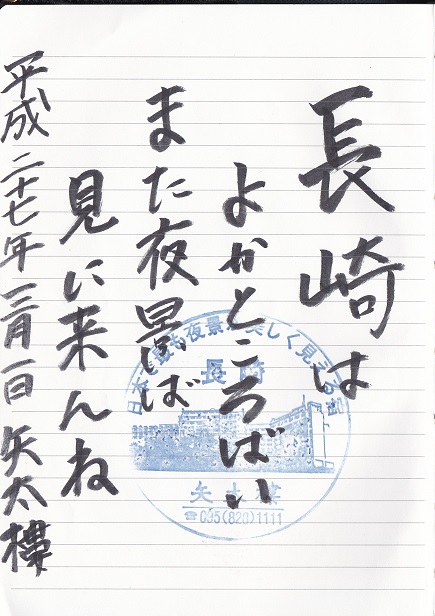 長崎は
よかところばい
また夜景ば
見に来んね
平成二十七年三月一日 矢太樓
日本で最も夜景が美しく見える宿
長崎
矢太樓
☎095(828)1111